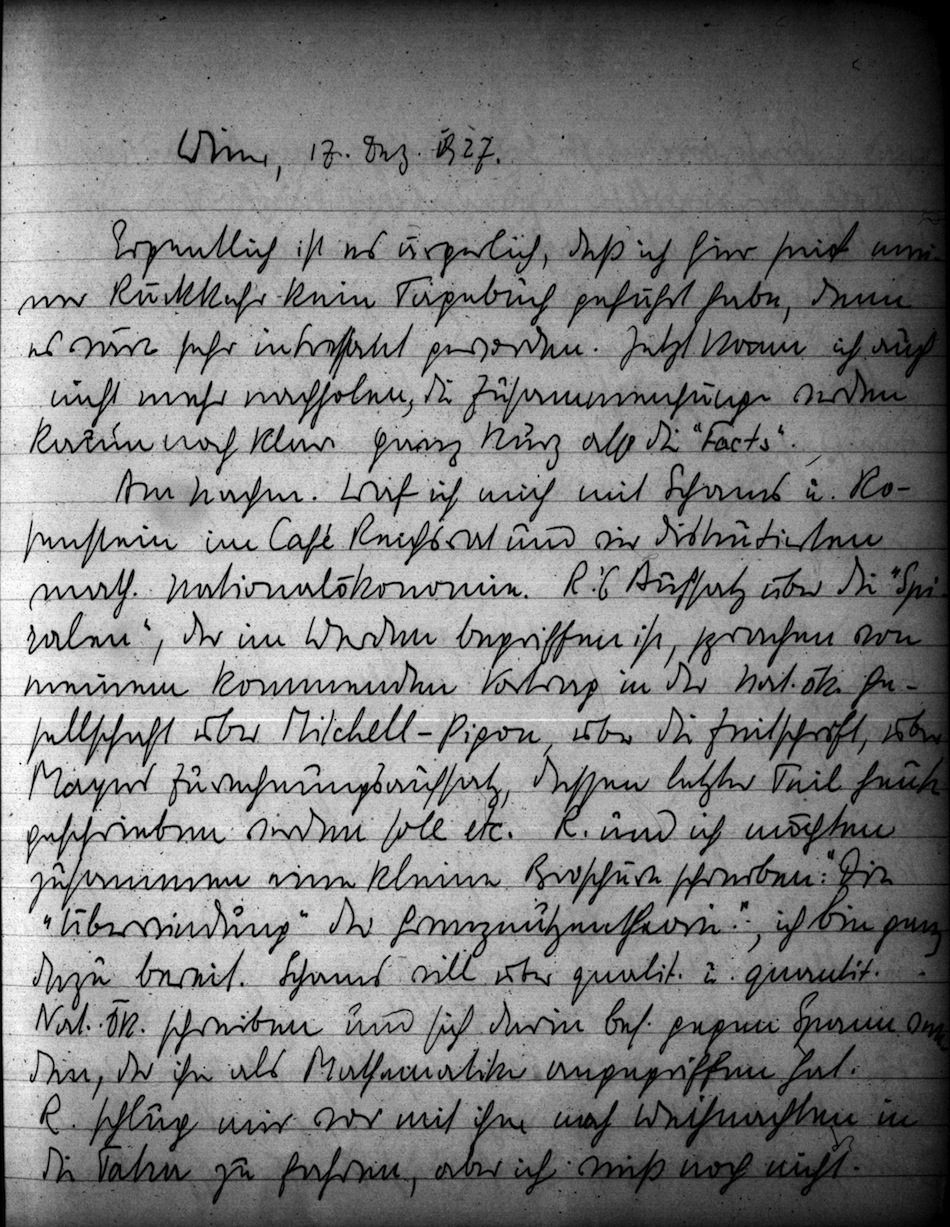 Wien, 17. Dez. 1927.
Eigentlich ist es ärgerlich, daß ich hier seit mei-
ner Rückkehr kein Tagebuch geführt habe, denn
es wäre sehr interessant geworden. Jetzt kann ich auch
nicht mehr nachholen, die Zusammenhänge werden
kaum noch klar ganz kurz also die "Facts".
Am Nachm. traf ich mich mit Schams u. Ro-
senstein im Café Reichsrat und wir diskutierten
math. Nationalökonomie. R.'s Aufsatz über die "Spi-
ralen", der im Werden begriffen ist, sprachen von
meinem kommenden Vortrag in der Nat. ök. Ge-
sellschaft über Mitchell-Pigou, über die Zeitschrift, über
Mayers Zurechnungsaufsatz, dessen letzter Teil heute
geschrieben werden soll etc. R. und ich möchten
zusammen eine kleine Broschüre schreiben: "Die
"Überwindung" der Grenznutzentheorie"; ich bin ganz
dazu bereit. Schams will über qualit. u. quantit.
Nat. Ök. schreiben und sich darin bes. gegen Spann wen-
den, der ihn als Mathematiker angegriffen hat.
R. schlug mir vor mit ihm nach Weihnachten in
die Tatra zu fahren, aber ich weiß noch nicht.